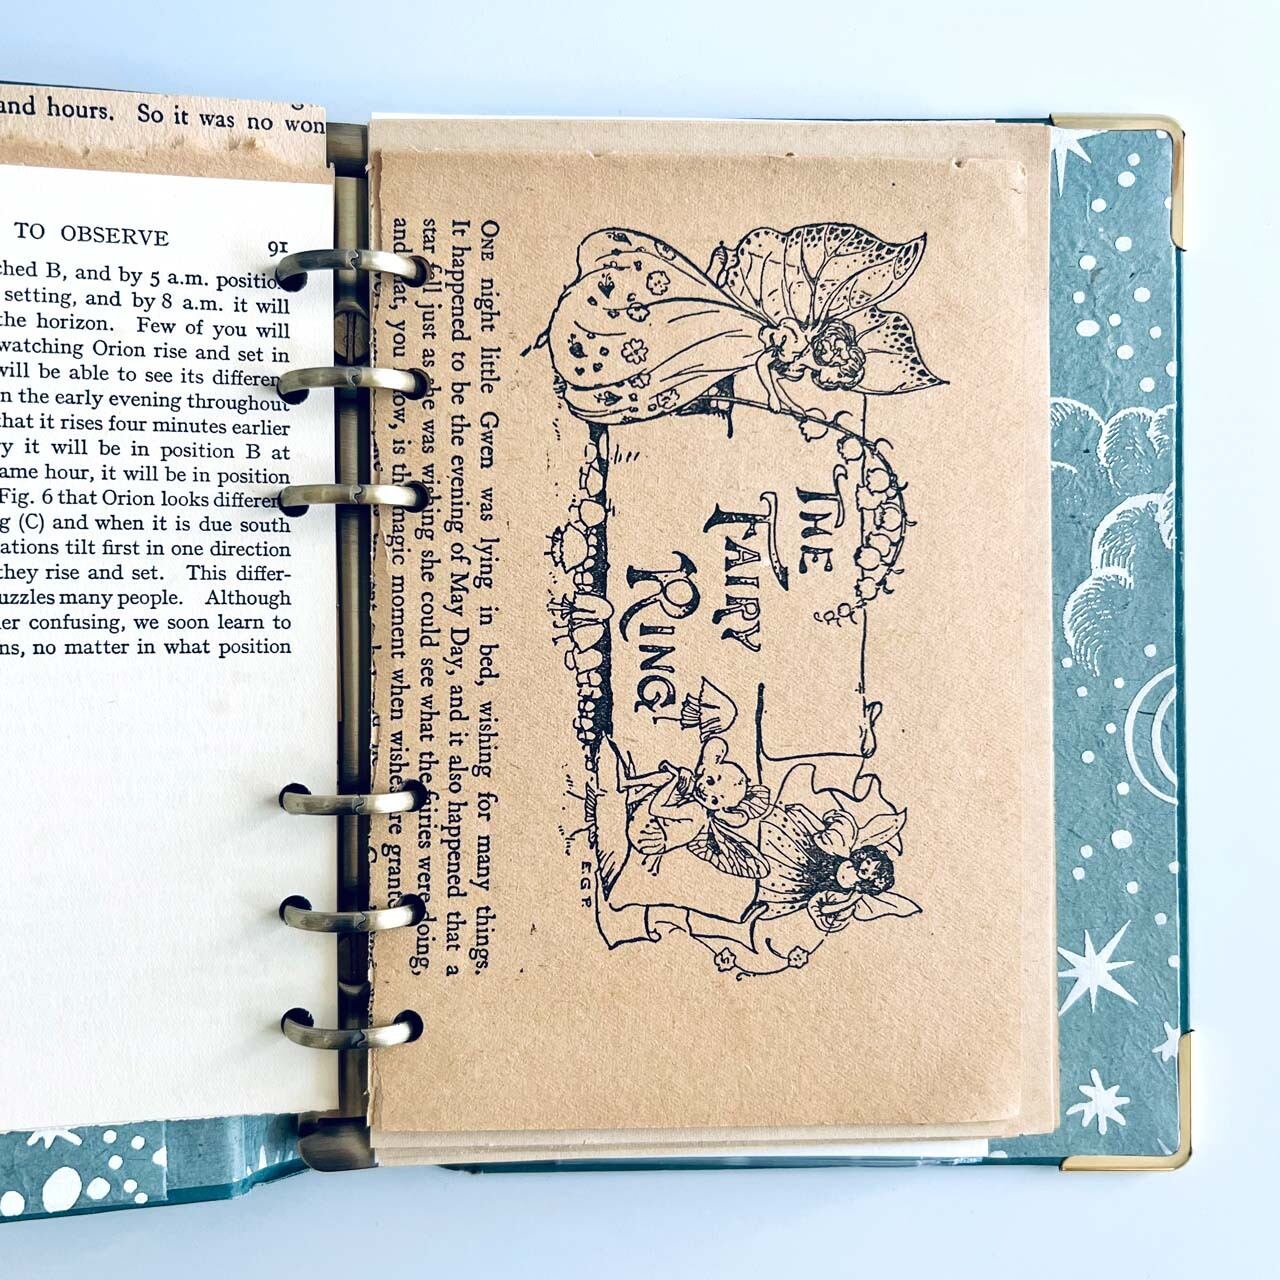 and hours. So it was no won
TO OBSERVE 91
ched B, and by 5 a.m. position
setting, and by 8 a.m. it will
the horizon. Few of you will
watching Orion rise and set in
will be able to see its differen
n the early evening throughout
that it rises four minutes earlier
ry it will be in position B at
ame hour, it will be in position
Fig. 6 that Orion looks differen
g (C) and when it is due south
ations tilt first in one direction
they rise and set. This differ-
uzzles many people. Although
er confusing, we soon learn to
ns, no matter in what position
THE
FAIRY
RING
E.G.P.
ONE night little Gwen was lying in bed, wishing for many things.
It happened to be the evening of May Day, and it also happened that a
star fell just as she was wishing she could see what the fairies were doing,
and that, you know, is the magic moment when wishes are granted